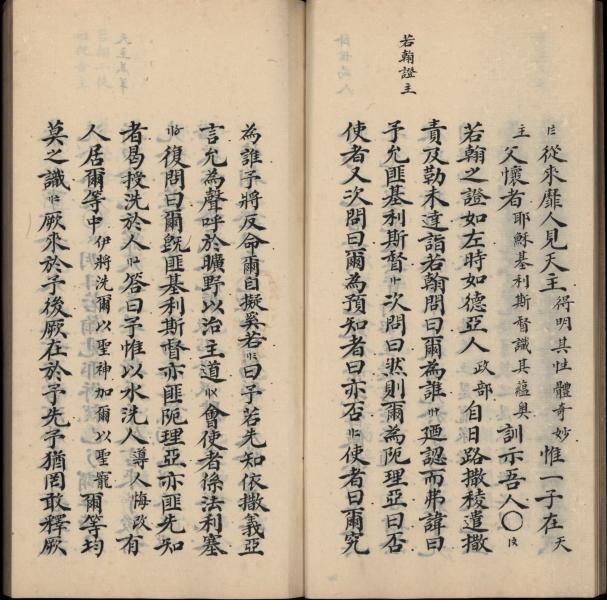 若翰證主
從來靡人見天主得明其性體奇妙惟一子在天
主父懷者耶穌基利斯督識其蘊奧訓示吾人〇
若翰之證如左時如德亞人政部自日路撒稜遣撒
責及勒未達詣若翰問曰爾為誰廼認而弗諱曰
予允匪基利斯督次問曰然則爾為阨理亞曰否
使者又次問曰爾為預知者曰亦否使者曰爾究
為誰予將反命爾自擬奚若曰予若先知依撒義亞
言允為聲呼於曠野以治主道會使者係法利塞
復問曰爾旣匪基利斯督亦匪阨理亞亦匪先知
者曷授洗於人答曰予惟以水洗人導人悔改有
人居爾等中伊將洗爾以聖神加爾以聖寵爾等均
莫之識厥來於予後厥在於予先予猶罔敢釋厥